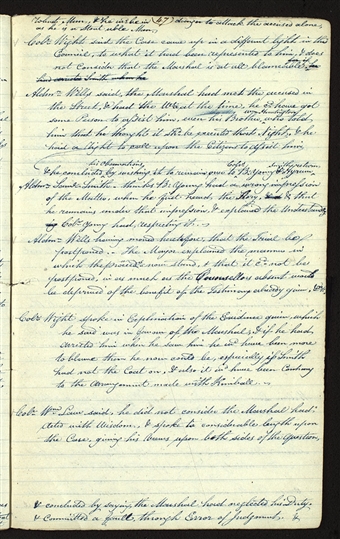 Nobody Man, & he wd be in (67) danger to attack the accused alone,
as he is a stout able Man,
Colr. Wight said the Case came up in a different light in the
Council, to what it had been represented to him, & does
not consider that the Marshal is at all blameable
Aldn. Wells said, the Marshal had met the accused in
the Street, & had the Writ at the time, he cd. have got
some Person to assist him, even his Brother, who told
him that he thought it wd. be prudent that Night, & he
had a Right to call upon the Citizens to assist him,
his Observations,
& he concluded by wishing it to remain over to B. Young & Hyrum
Aldn. Saml. Smith, thinks B. Young had a wrong impression
of the Matter, when he first heard the Story, & that
he remains under that impression, & explained the Understand
ing Colr. Young had, respecting it.
Aldn. Wells having moved heretofore, that the Trial be
postponed. The Mayor explained the manner in
which the proceedings now stand, & that it cd. not be
postponed, in as much as the Counsellors absent would
be deprived of the benefit of the Testimony already given,
Colr. Wight spoke in Explanation of the Evidence given, which
he said was in favour of the Marshal, & if he had
arrested him when he saw him he wd. have been more
to blame than he now could be, especially if Smith
had not the Coat on, & also it wd. have been Contrary
to the Arrangement made with Kimball.
Colr. Wm. Law said, he did not consider the Marshal had
acted with Wisdom, & spoke to considerable length upon
the Case, giving his Views upon both sides of the Question,
& concluded by saying the Marshal had neglected his Duty,
& Committed a fault, through Error of Judgment, &